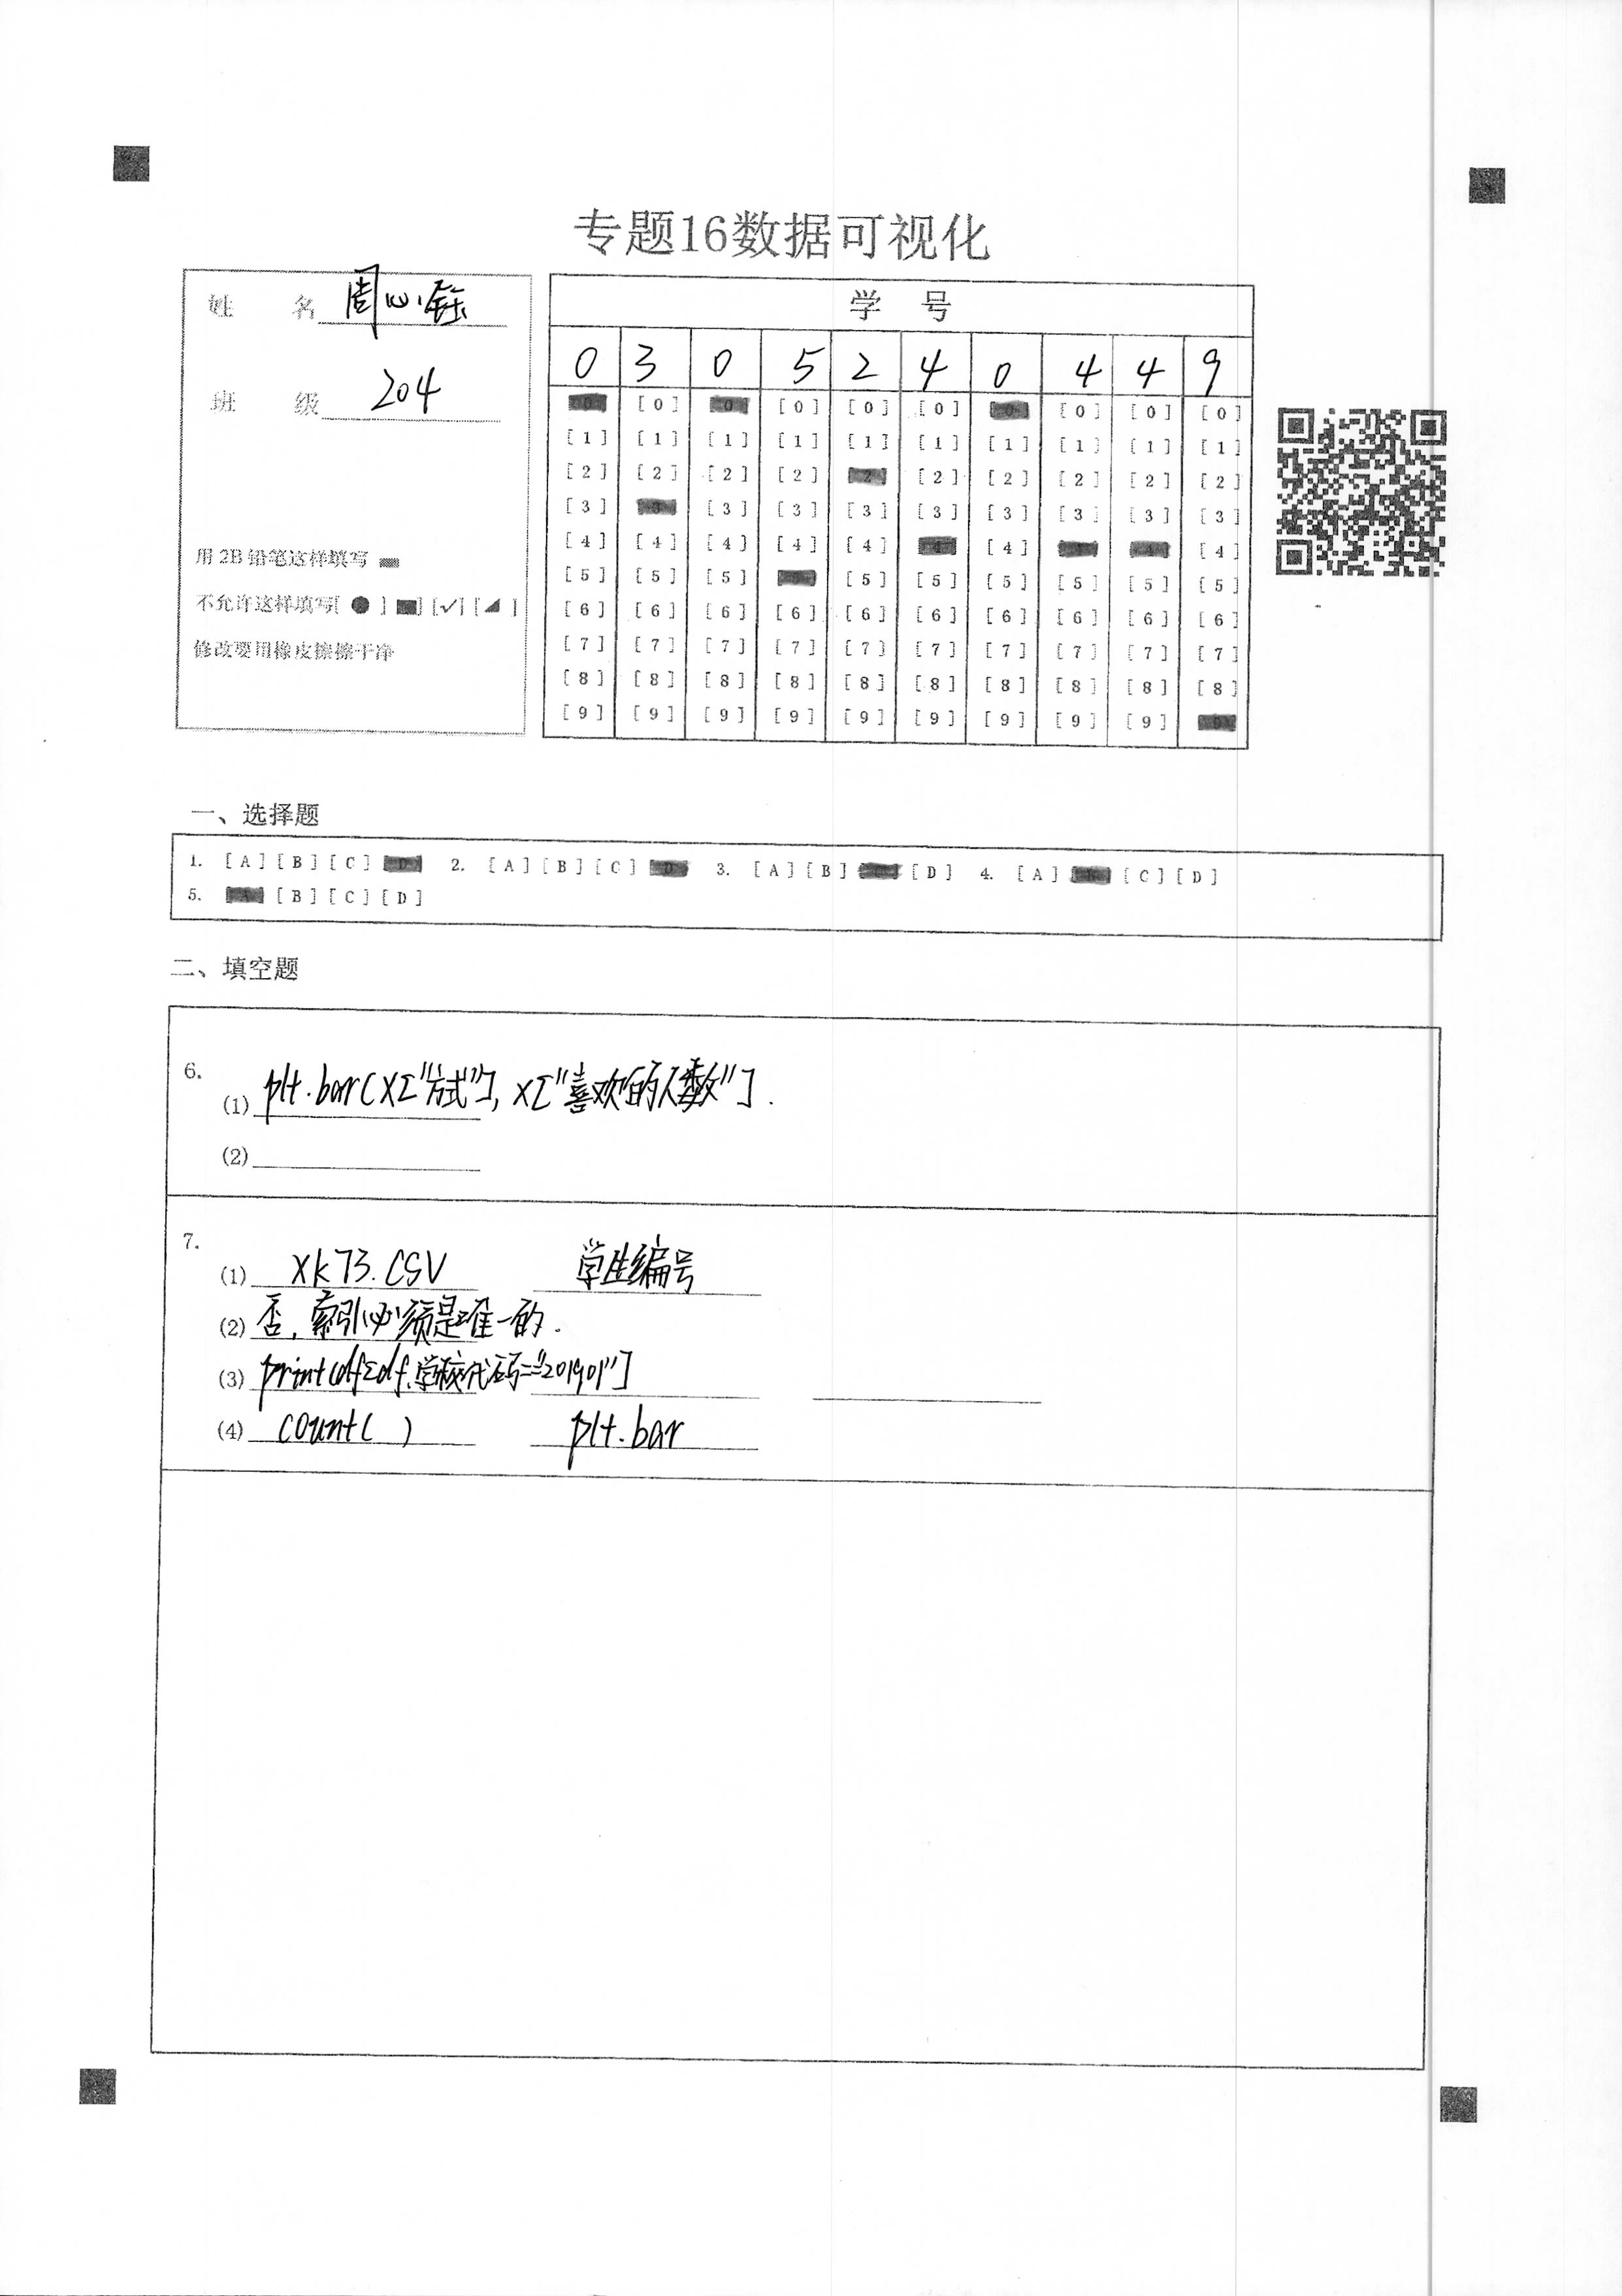 专题16数据可视化
姓 名 周心钰
班 级 204
用2B铅笔这样填写
不允许这样填写[ ● ] ■] [✓] [◢ ]
修改要用橡皮擦擦干净
学 号
0 3 0 5 2 4 0 4 4 9
[0] [0] [0] [0] [0] [0] [0] [0] [0] [0]
[1] [1] [1] [1] [1] [1] [1] [1] [1] [1]
[2] [2] [2] [2] [2] [2] [2] [2] [2] [2]
[3] [3] [3] [3] [3] [3] [3] [3] [3] [3]
[4] [4] [4] [4] [4] [4] [4] [4] [4] [4]
[5] [5] [5] [5] [5] [5] [5] [5] [5] [5]
[6] [6] [6] [6] [6] [6] [6] [6] [6] [6]
[7] [7] [7] [7] [7] [7] [7] [7] [7] [7]
[8] [8] [8] [8] [8] [8] [8] [8] [8] [8]
[9] [9] [9] [9] [9] [9] [9] [9] [9] [9]
一、选择题
1. [A] [B] [C] [D] 2. [A] [B] [C] [D] 3. [A] [B] [C] [D] 4. [A] [B] [C] [D]
5. [A] [B] [C] [D]
二、填空题
6.
(1) plt.bar(x["方式"], x["喜欢的人数"].
(2)
7.
(1) xk73.CSV 学生编号
(2) 否,索引必须是唯一的.
(3) print(df[df.学校代码=="201901"]
(4) count( ) plt.bar